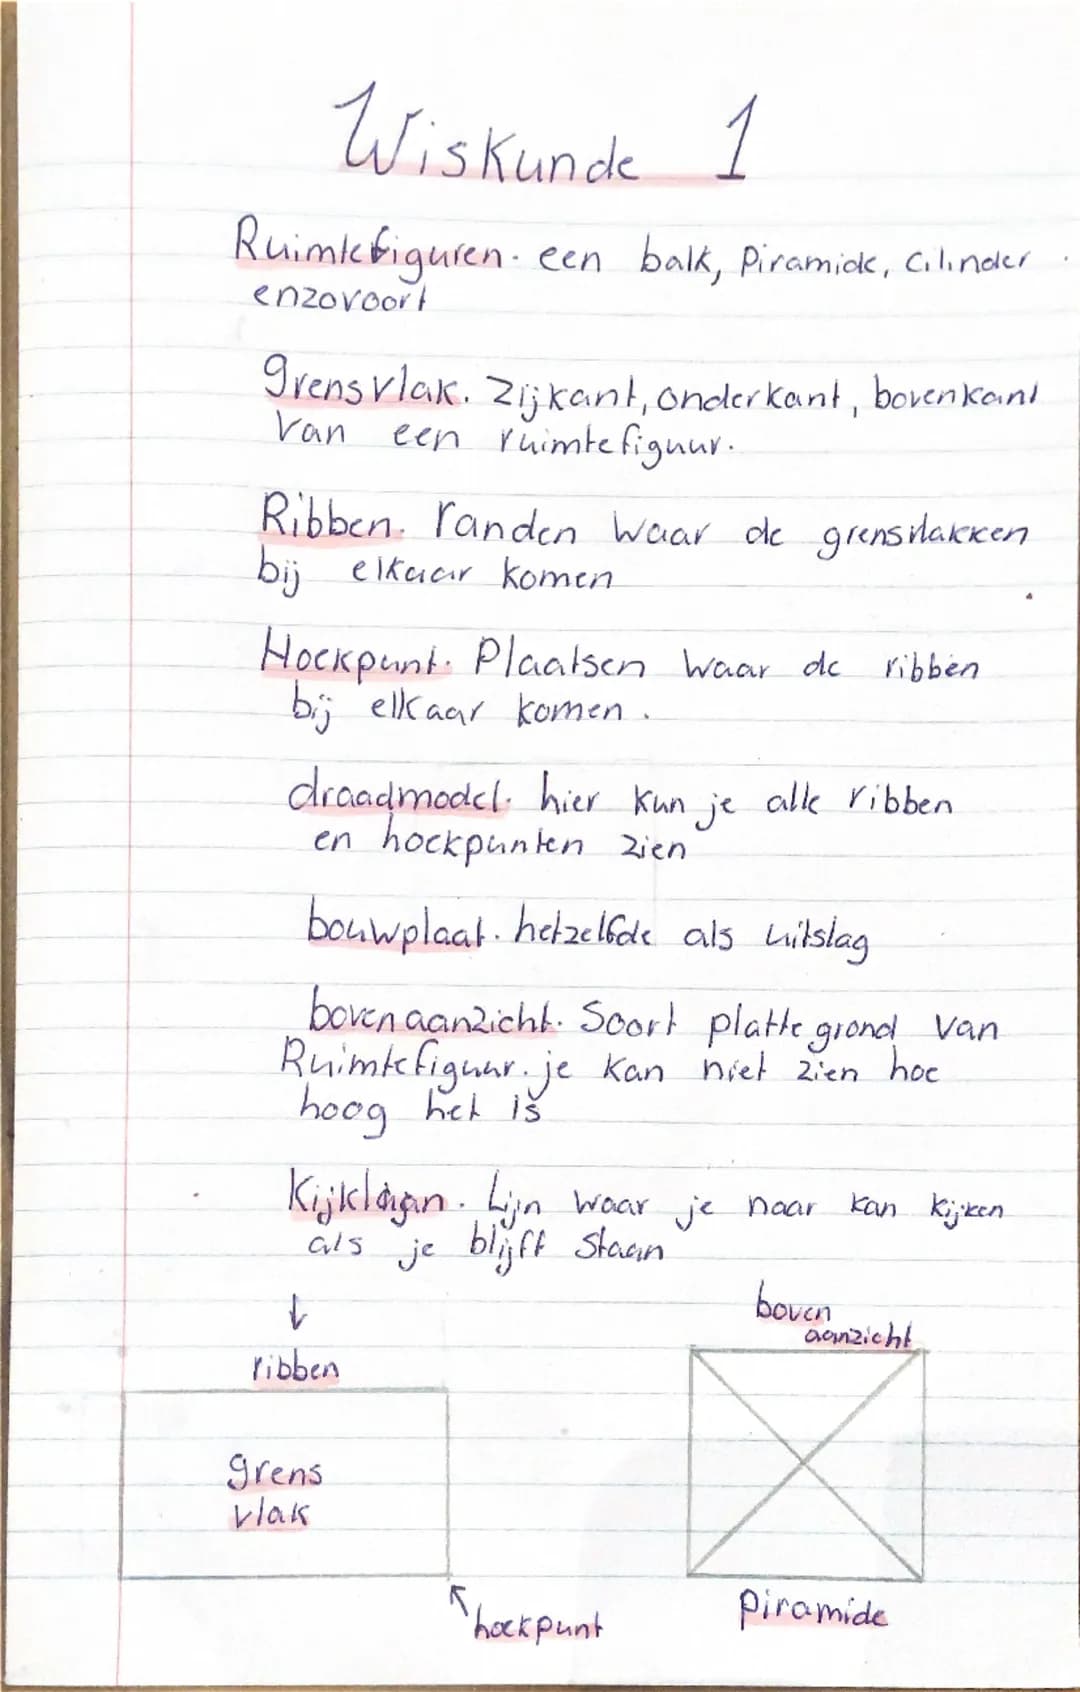 Wiskunde 1
Ruimtefiguren. een balk, piramide, cilinder
enzovoort
grensvlak. Zijkant, onderkant, bovenkant
van een ruimtefiguur.
Ribben. randen waar de grensvlakken
bij elkaar komen
Hoekpunt. Plaatsen waar de ribben
bij elkaar komen.
draadmodel. hier kun je alle ribben
en hoekpunten zien
bouwplaat. hetzelfde als uitslag
bovenaanzicht. Soort platte grond van
Ruimtefiguur. je kan niet zien hoe
hoog het is
Lijn waar je naar kan kijken
als je blijft staan
↓
ribben
grens
vlak
hoekpunt
boven
aanzicht
piramide